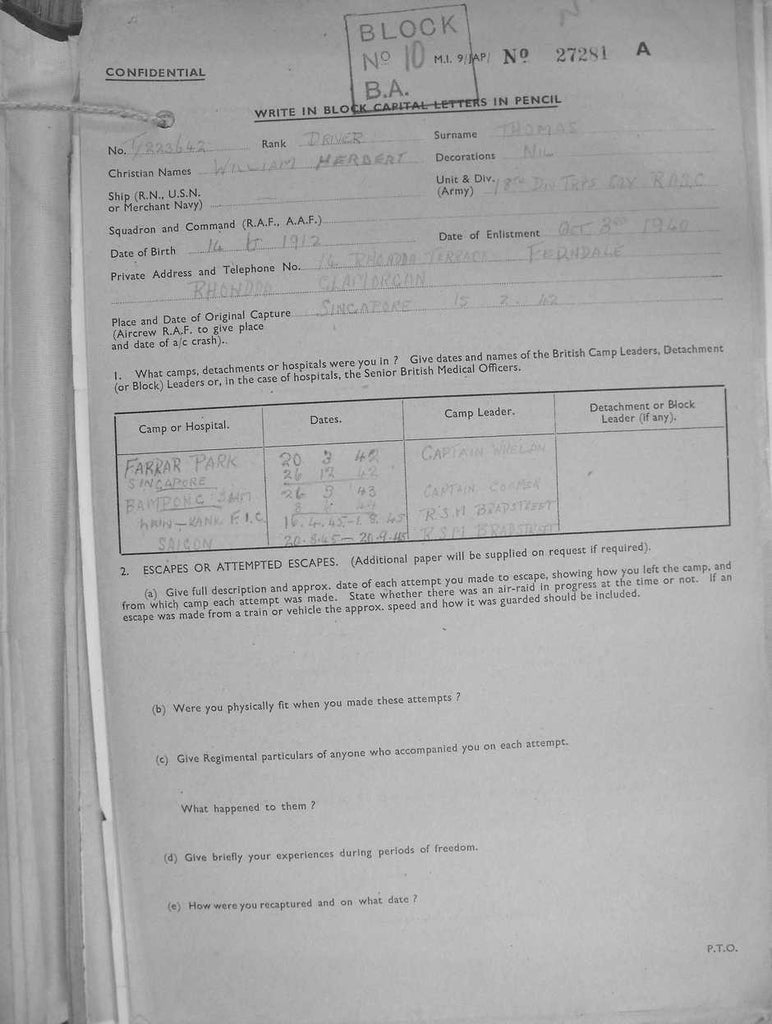 BLOCK
Nº 10
B.A.
M.I. 9/JAP/ Nº 27281 A
CONFIDENTIAL
WRITE IN BLOCK CAPITAL LETTERS IN PENCIL
No. T/223642 Rank DRIVER Surname THOMAS
Christian Names WILLIAM HERBERT Decorations NIL
Ship (R.N., U.S.N. or Merchant Navy)
Unit & Div. (Army) 18TH DIV TRPS COY R.A.S.C
Squadron and Command (R.A.F., A.A.F.)
Date of Birth 14 6 1912 Date of Enlistment OCT 3RD 1940
Private Address and Telephone No. 14 RHONDDA TERRACE FERNDALE
RHONDDA GLAMORGAN
Place and Date of Original Capture SINGAPORE 15 2 42
(Aircrew R.A.F. to give place
and date of a/c crash)..
1. What camps, detachments or hospitals were you in ? Give dates and names of the British Camp Leaders, Detachment
(or Block) Leaders or, in the case of hospitals, the Senior British Medical Officers.
Camp or Hospital. Dates. Camp Leader. Detachment or Block Leader (if any).
FARRAR PARK 20 3 42 CAPTAIN WHELAN
SINGAPORE 26 12 42
BAMPONG 26 3 43 CAPTAIN
16.4.45-1.8.45 R.S.M BRADSTREET
SAIGON 20.8.45-20.9.45 R.S.M BRADSTREET
2. ESCAPES OR ATTEMPTED ESCAPES. (Additional paper will be supplied on request if required).
(a) Give full description and approx. date of each attempt you made to escape, showing how you left the camp, and
from which camp each attempt was made. State whether there was an air-raid in progress at the time or not. If an
escape was made from a train or vehicle the approx. speed and how it was guarded should be included.
(b) Were you physically fit when you made these attempts ?
(c) Give Regimental particulars of anyone who accompanied you on each attempt.
What happened to them ?
(d) Give briefly your experiences during periods of freedom.
(e) How were you recaptured and on what date ?
P.T.O.